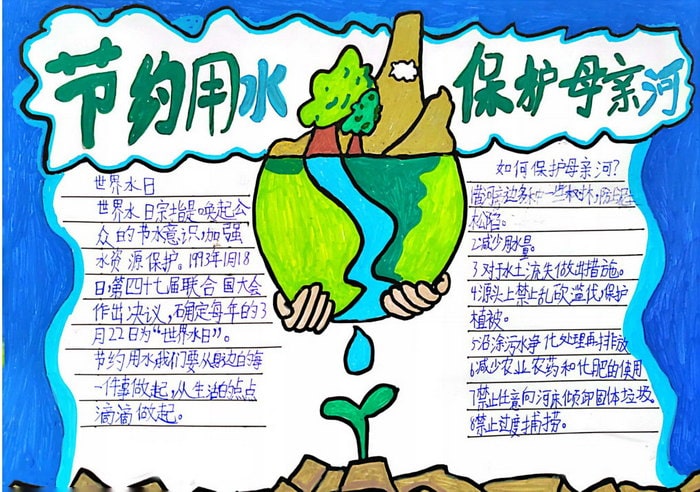 节约用水
保护母亲河
世界水日
世界水日宗指是唤起公
众的节水意识,加强
水资源保护。1993年1月18
日,第四十七届联合国大会
作出决议,确定每年的3
月22日为“世界水日”。
节约用水,我们要从身边的每
一件事做起,从生活的点点
滴滴做起。
如何保护母亲河?
河边多种一些树木,防止
2减少用水量。
3对于水土流失做出措施。
4源头上禁止乱砍滥伐,保护
植被。
5沿途污水净化处理再排放
6减少农业农药和化肥的使用
7禁止任意向河床倾卸固体垃圾。
8禁止过度捕捞。